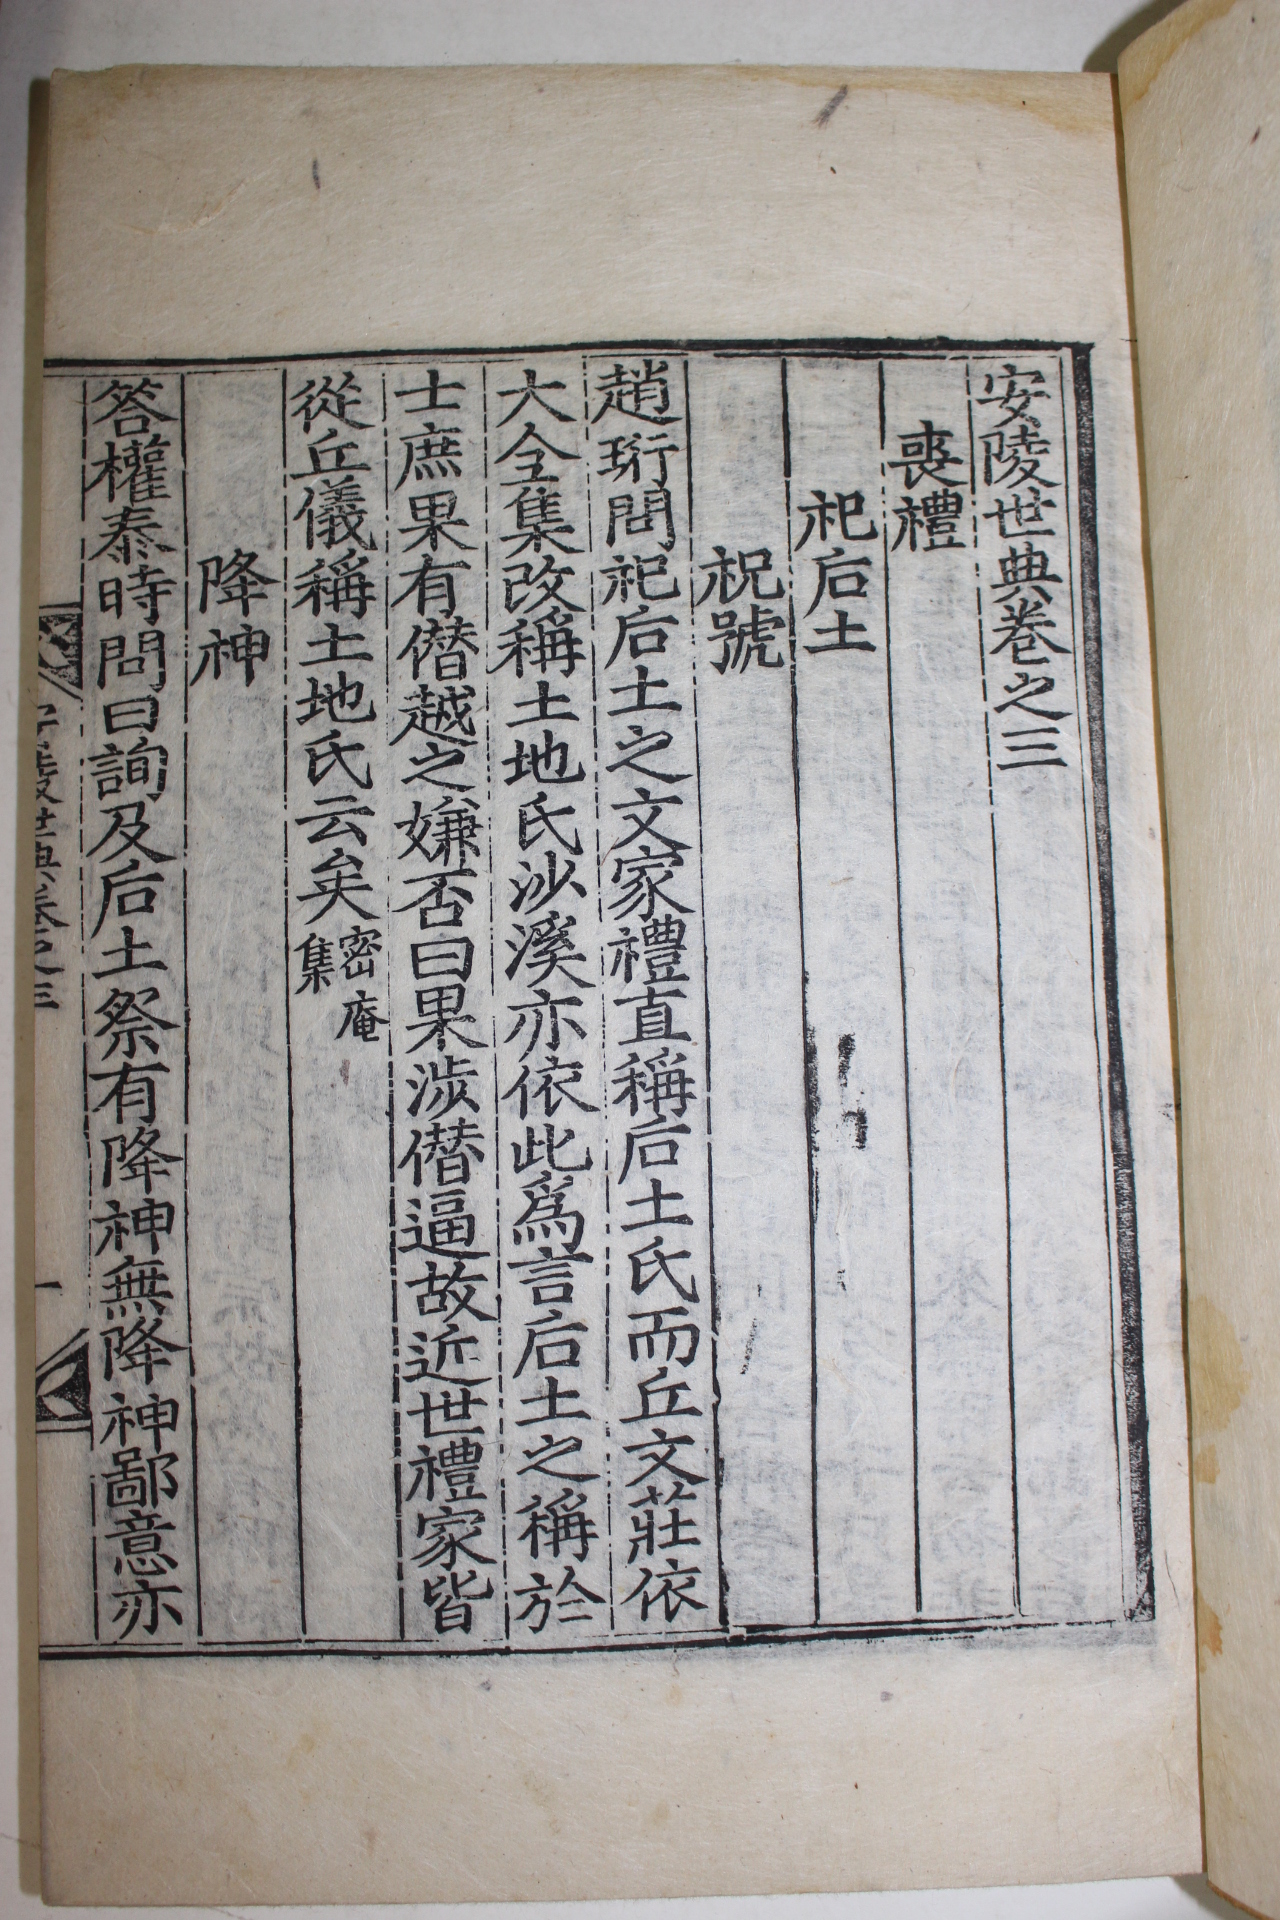 安陵世典卷之三
喪禮
祀后土
祝號
趙珩問祀后土之文家禮直稱后土氏而丘文莊依
大全集改稱土地氏沙溪亦依此爲言后土之稱於
士庶果有僭越之嫌否曰果涉僭逼故近世禮家皆
從丘儀稱土地氏云矣密庵
集
降神
答權泰時問曰詢及后土祭有降神無降神鄙意亦
安陵世典卷之三
一